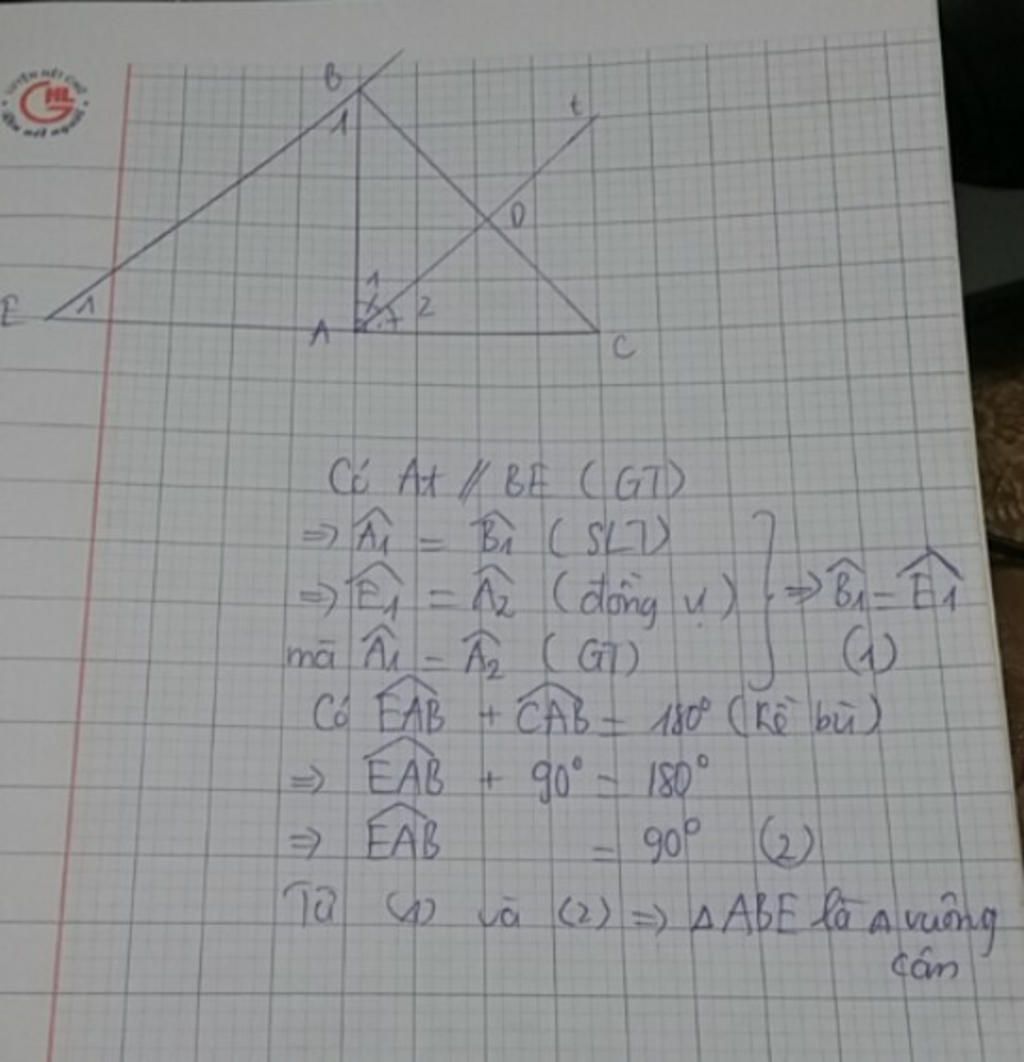 B
t
1
D
1
E
1
2
A
C
Có At // BE (GT)
⇒ Â1 = B̂1 (SLT)
⇒ Ê1 = Â2 (đồng vị) ⇒ B̂1 = Ê1
mà Â1 = Â2 (GT) (1)
Có EAB + CAB = 180° (Kề bù)
⇒ EAB + 90° = 180°
⇒ EAB = 90° (2)
Từ (1) và (2) ⇒ ΔABE là Δ vuông
cân